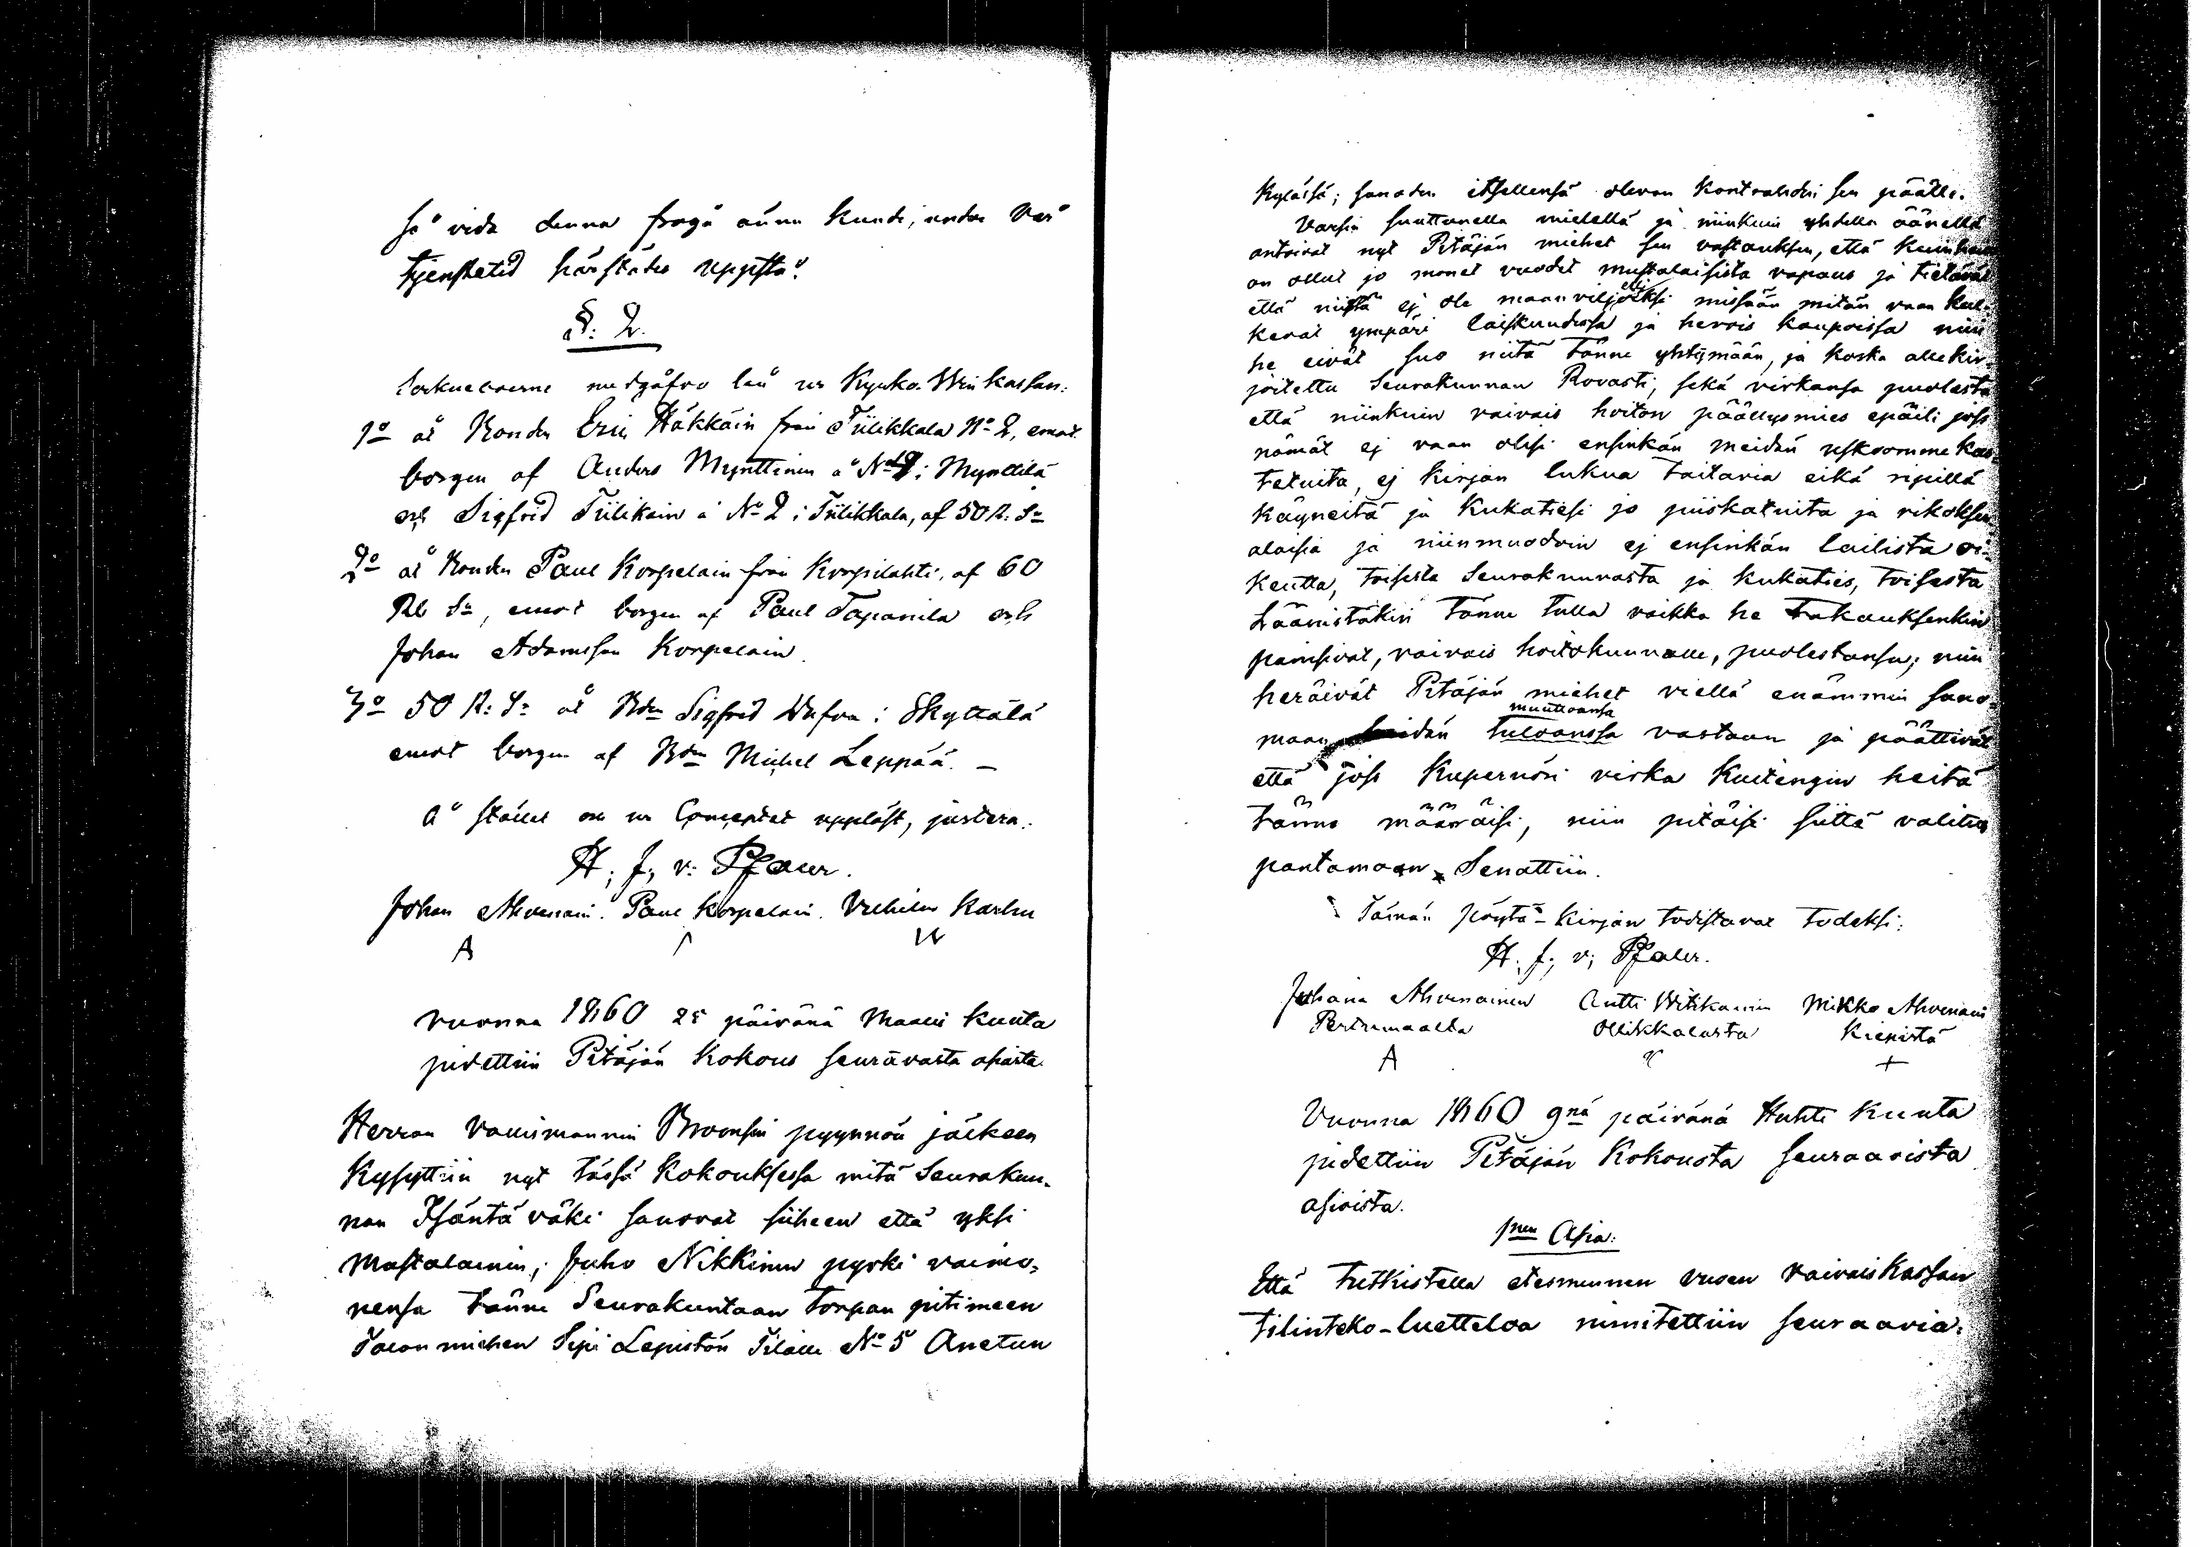 så vida denna fråga ännu kunde, under Vår
tjenstetid härstädes uppstå.
§. 2.
medgåfvo lån ur Kyrko-Win kassan:
1o åt Bonden Eric Häkkäin från Tiilikkala No 2, emot
borgen af Anders Mynttinen å No 9 i Mynttilä
och Sigfrid Tiilikain å No 2 i Tiilikkala, af 50 R: Sr
2o åt Bonden Paul Korpelain från Korpilahti, af 60
Rb Sr, emot borgen af Paul Tapanila och
Johan Adamsson Korpelain.
3o 50 R: Sr åt Bdn Sigfred i Skyttälä
emot borgen af Bdn Michel Leppää. —
å stället och ur Conceptet uppläst, justera:
H. J. v. Pfaler.
Johan Ahvenain. Paul Korpelain. Vilhelm Karhu
A W
Vuonna 1860 25 päivänä Maalis kuuta
pidettiin Pitäjän Kokous seuravasta asiasta.
Herran Vallesmannin pyynnön jälkeen
Kysyttiin nyt tässä Kokouksessa mitä Seurakun-
nan Isäntä väki sanovat siiheen että yksi
Mustalainen, Juho Nikkinen pyrki vaimo-
nensa tänne Seurakuntaan torpan pitimeen
Talon miehen Sipi Lepistön Tilalle No 5 Anetun
Kylässä; sanoden itsellensä olevan Kontrahdin sen päälle.
Varsin suuttunella mielellä ja niinkuin yhdellä äänellä
antoivat nyt Pitäjän miehet sen vastauksen, että
on ollut jo monet vuodet mustalaisista vapaus ja tietävät
että niistä ej ole maanviljoiksi missään mitän vaan kul-
kevat ympäri laiskuudessa ja hevois kaupoissa niin
he eivät suo niitä tänne yhtymään, ja koska allekir-
joitettu Seurakunnan Rovasti, sekä virkansa puolesta
että niinkuin vaivais hoiton päällysmies epäili jos
nämät ej vaan olisi ensinkän meidän uskoomme kas-
tetuita, ej kirjan lukua taitavia eikä ripillä
käyneitä ja kukatiesi jo piiskatuita ja rikoksen
alaisia ja niinmuodoin ej ensinkän laillista oi-
keutta, toisesta Seurakunnasta ja kukaties, toisesta
Läänistäkin tänne tulla vaikka he takauksenkin
panisivat, vaivais hoitokunnalle, puolestansa; niin
heräivät Pitäjän miehet viellä enämmin sano-
muuttoansa
maan heidän tuloansa vastaan ja päättivät
että jos Kupernöri virka kuitengin heitä
tänne määräisi, niin pitäisi siittä valitus
pantamaan Senattiin.
Tämän pöytä-kirjan todistavat todeksi:
H. J. v. Pfaler.
Juhana Ahvenainen Antti Witikainin Mikko Ahvenain
Pertumaalta Ollikkalasta Kiepistä
A +
Vuonna 1860 9nä päivänä Huhti Kuuta
pidettiin Pitäjän Kokousta seuraavista
asioista.
1nen Asia:
Että tutkistella etesmennen vuoen vaivais Kassan
tilinteko-luetteloa nimitettiin seuraavia: